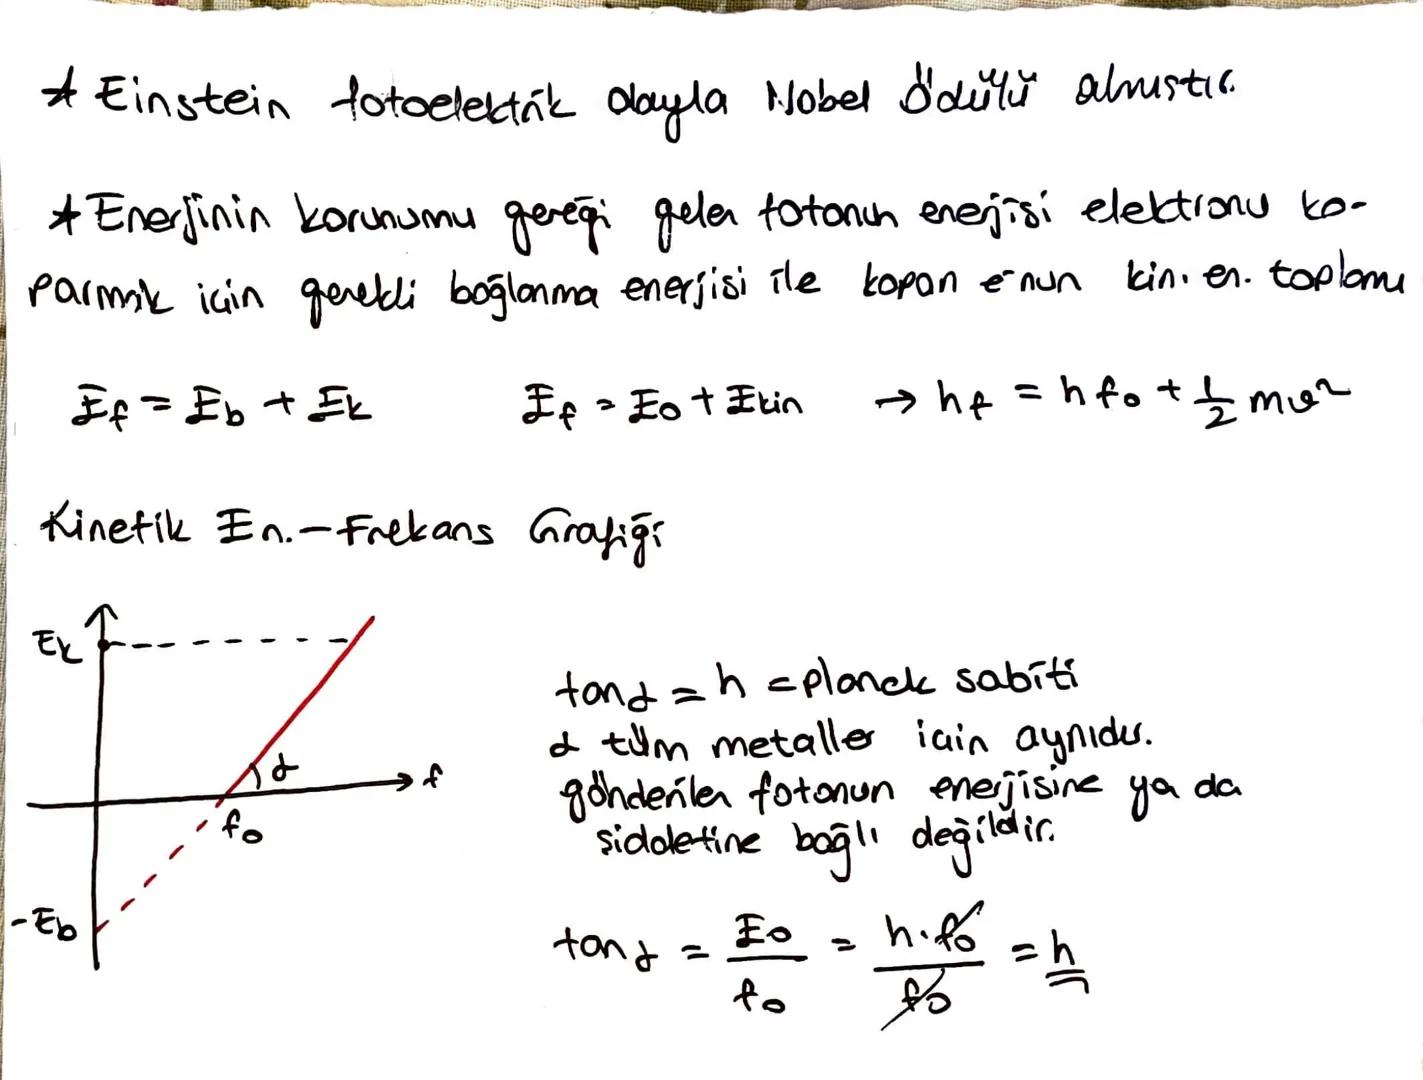 * Einstein fotoelektrik olayla Nobel Ödülü almıştır.
* Enerjinin korunumu gereği gelen fotonun enerjisi elektronu ko-
parmak için gerekli bağlanma enerjisi ile kopan e⁻nun kin. en. toplamı
Ef = Eb + Ek Ef = E0 + Ekin → hf = hf0 + 1/2 mv²
Kinetik En. - Frekans Grafiği
Ek
α
f
f0
-Eb
tanα = h = planck sabiti
α tüm metaller için aynıdır.
gönderilen fotonun enerjisine ya da
şiddetine bağlı değildir.
tanα = E0/f0 = h.f0/f0 = h